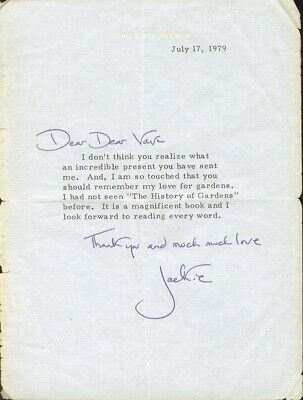 July 17, 1979
Dear Dear Vava
I don't think you realize what
an incredible present you have sent
me. And, I am so touched that you
should remember my love for gardens.
I had not seen "The History of Gardens"
before. It is a magnificent book and I
look forward to reading every word.
Thank you and much much love
Jackie